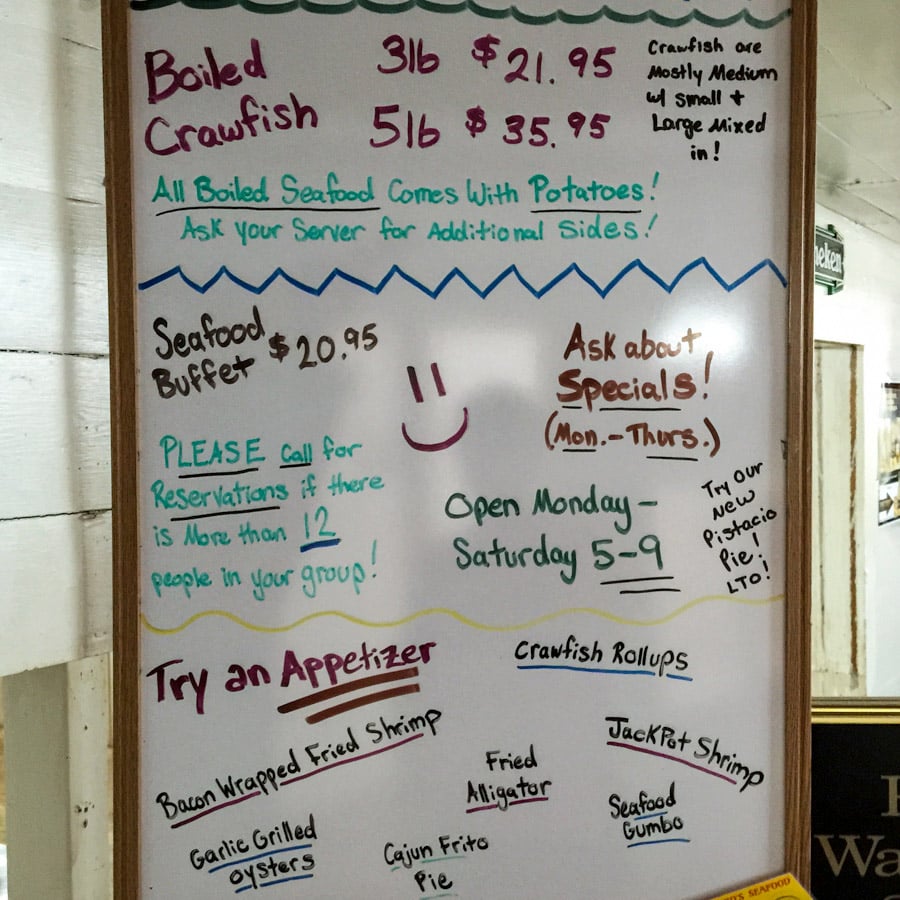 Boiled 3lb $21.95
Crawfish 5lb $35.95
Crawfish are
Mostly Medium
w/ small +
Large Mixed
in!
All Boiled Seafood Comes With Potatoes!
Ask your Server for Additional sides!
Seafood
Buffet $20.95
Ask about
Specials!
(Mon.-Thurs.)
PLEASE call for
Reservations if there
is More than 12
people in your group!
Open Monday -
Saturday 5-9
Try Our
New
Pistacio
Pie!
LTO!
Try an Appetizer
Crawfish Rollups
Bacon Wrapped Fried Shrimp
Fried
Alligator
JackPot Shrimp
Garlic Grilled
oysters
Cajun Frito
Pie
Seafood
Gumbo
eken
Wa
SEAFOOD